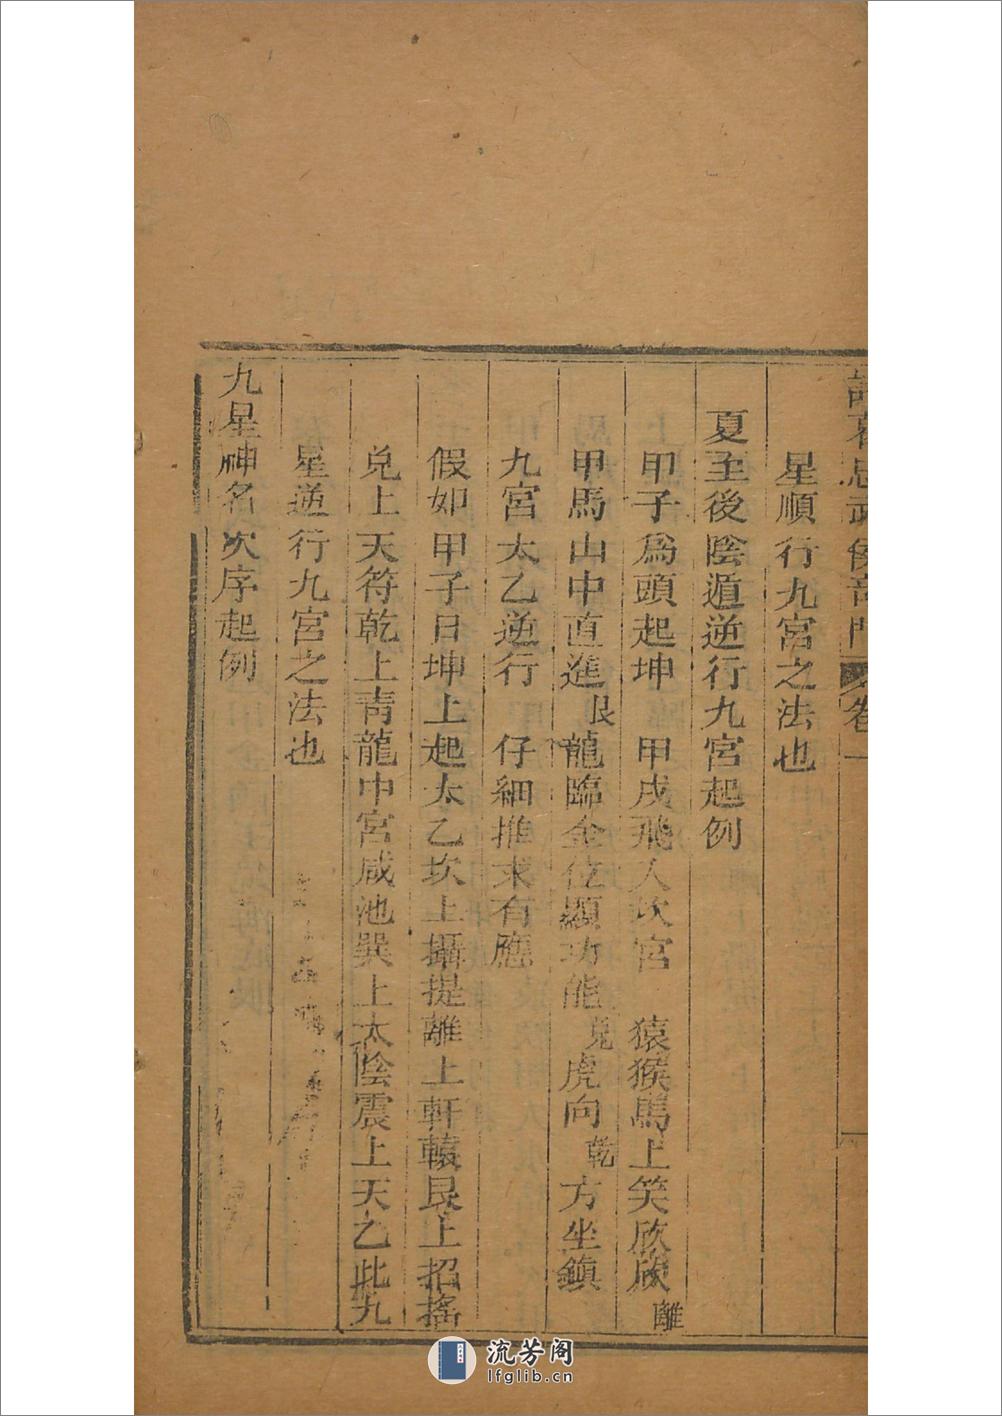 諸葛忠武侯奇門 卷一
星順行九宮之法也
夏至後陰遁逆行九宮起例
甲子爲頭起坤 甲戌飛入坎宮 猿猴馬上笑欣欣離
甲馬山中直進艮龍臨金位顯功能兌虎向乾方坐鎮
九宮太乙逆行 仔細推求有應
假如甲子日坤上起太乙坎上攝提離上軒轅艮上招搖
兌上天符乾上靑龍中宮咸池巽上太陰震上天乙此九
星逆行九宮之法也
九星神名次序起例
流芳阁
lfglib.cn